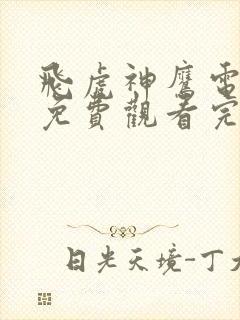 飛虎神鷹電
免費觀看完
日光天境-丁大